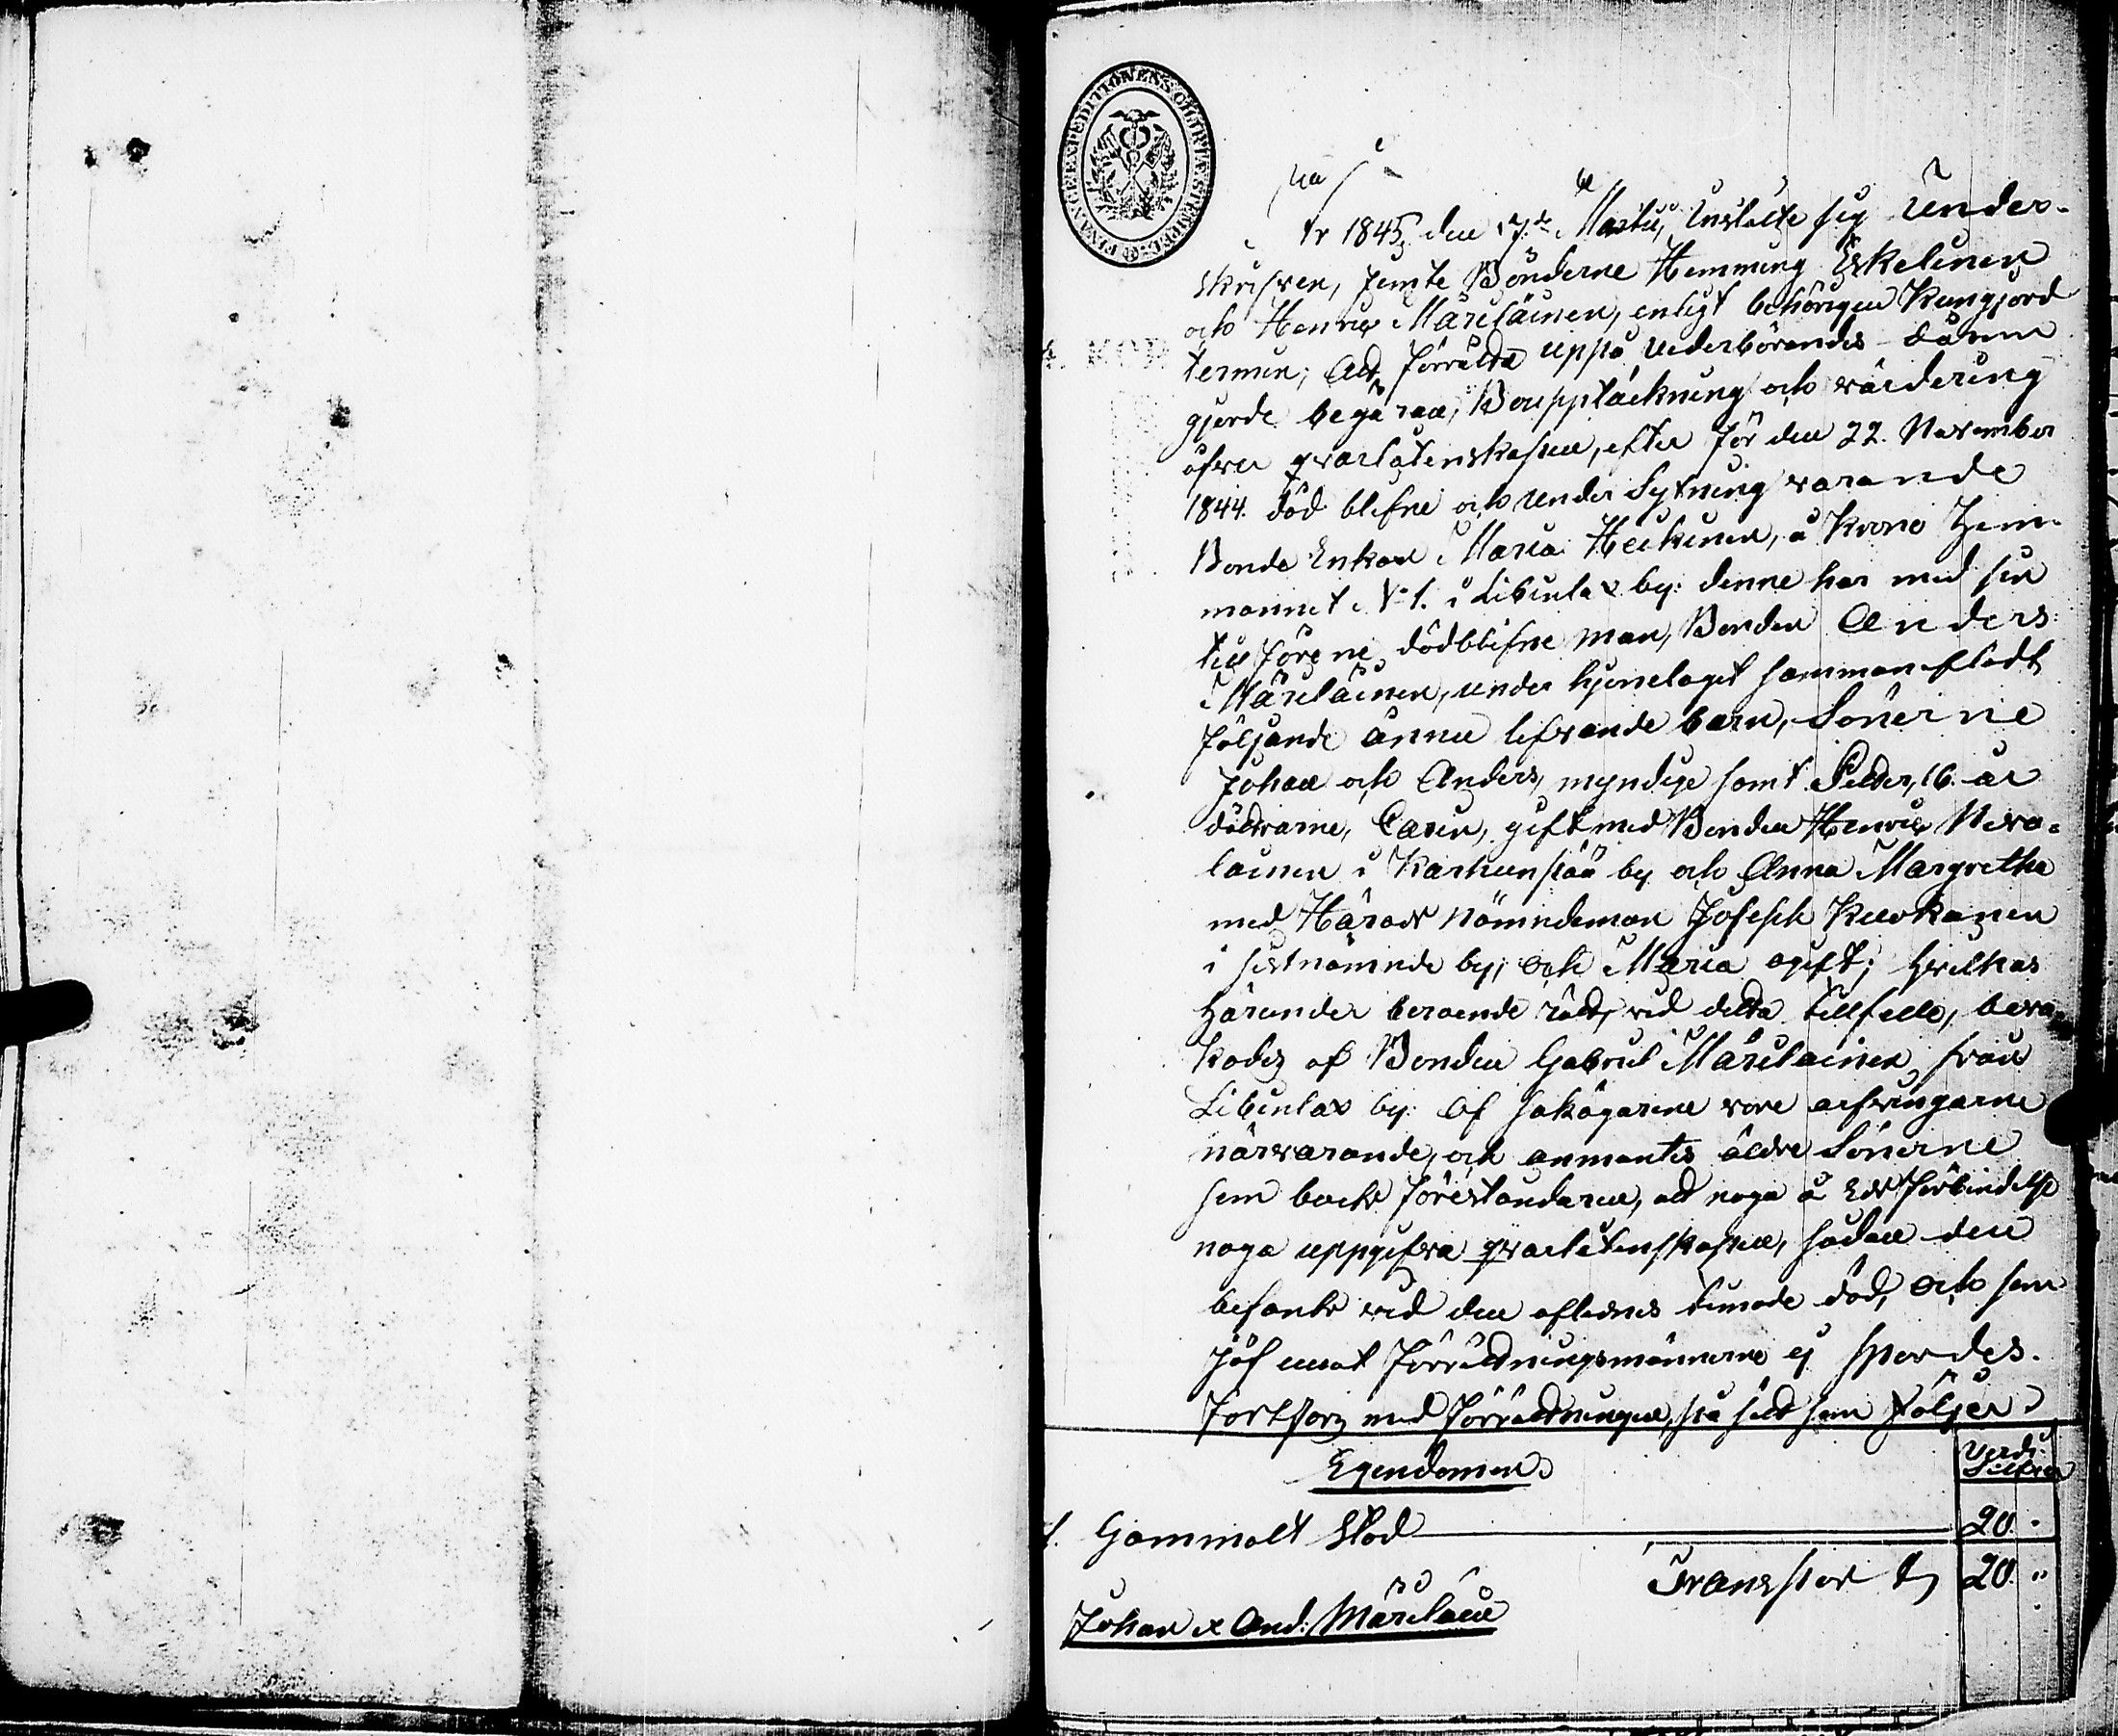 FINANCE EXPEDITIONENS CHARTÆ STEMPEL
År 1845 den 17de Martii, Instälte sig Under-
skrifven, jemte Bönderne Hemming Eskelinen
och Henric Märiläinen, enligt behörigen Kungjord
termin, att förrätta uppå vederbörandes derom
gjorde begäran, Bouppteckning och värdering
öfver qvarlåtenskapen, efter för den 22. November
1844. död blefne och under Sytning varande
Bonde Enkan Maria Heikinen, å Krono Hem-
mannet N 1. i Libinlax by: denne har med sin
till förene dödblefne man, Bonden Anders
Märiläinen, under hjonelaget sammanafladt
följande ännu lefvande barn, Sönerne
Johan och Anders, myndige samt Petter, 16 år
döttrarne, Carin, gift med Bonden Henric Neva-
lainen i Karhunpää by och Anna Margretha
med Härads Nämndeman Joseph Kuokanen
i sistnämnde by, och Maria ogift; hvilkas
härunder beroende rätt, vid detta tillfelle, beva-
kades af Bonden Gabriel Märilainen från
Libinlax by: Af sakägarene vore arfvingarne
närvarande, och anmantes äldre Sönerne
som boets föreståndaren, att noga å Eds förbindelse
noga uppgifva qvarlåtenskapen, sådan den
befants vid den aflednes timade död, och som
jäf emot Förrättningsmännerne ej spordes.
Fortfors med förrättningen, på sätt som följer
Egendomen Verdi Silfver
1. Gammalt Stod 20. "
Transport 20. "
Johan & And: Märiläin